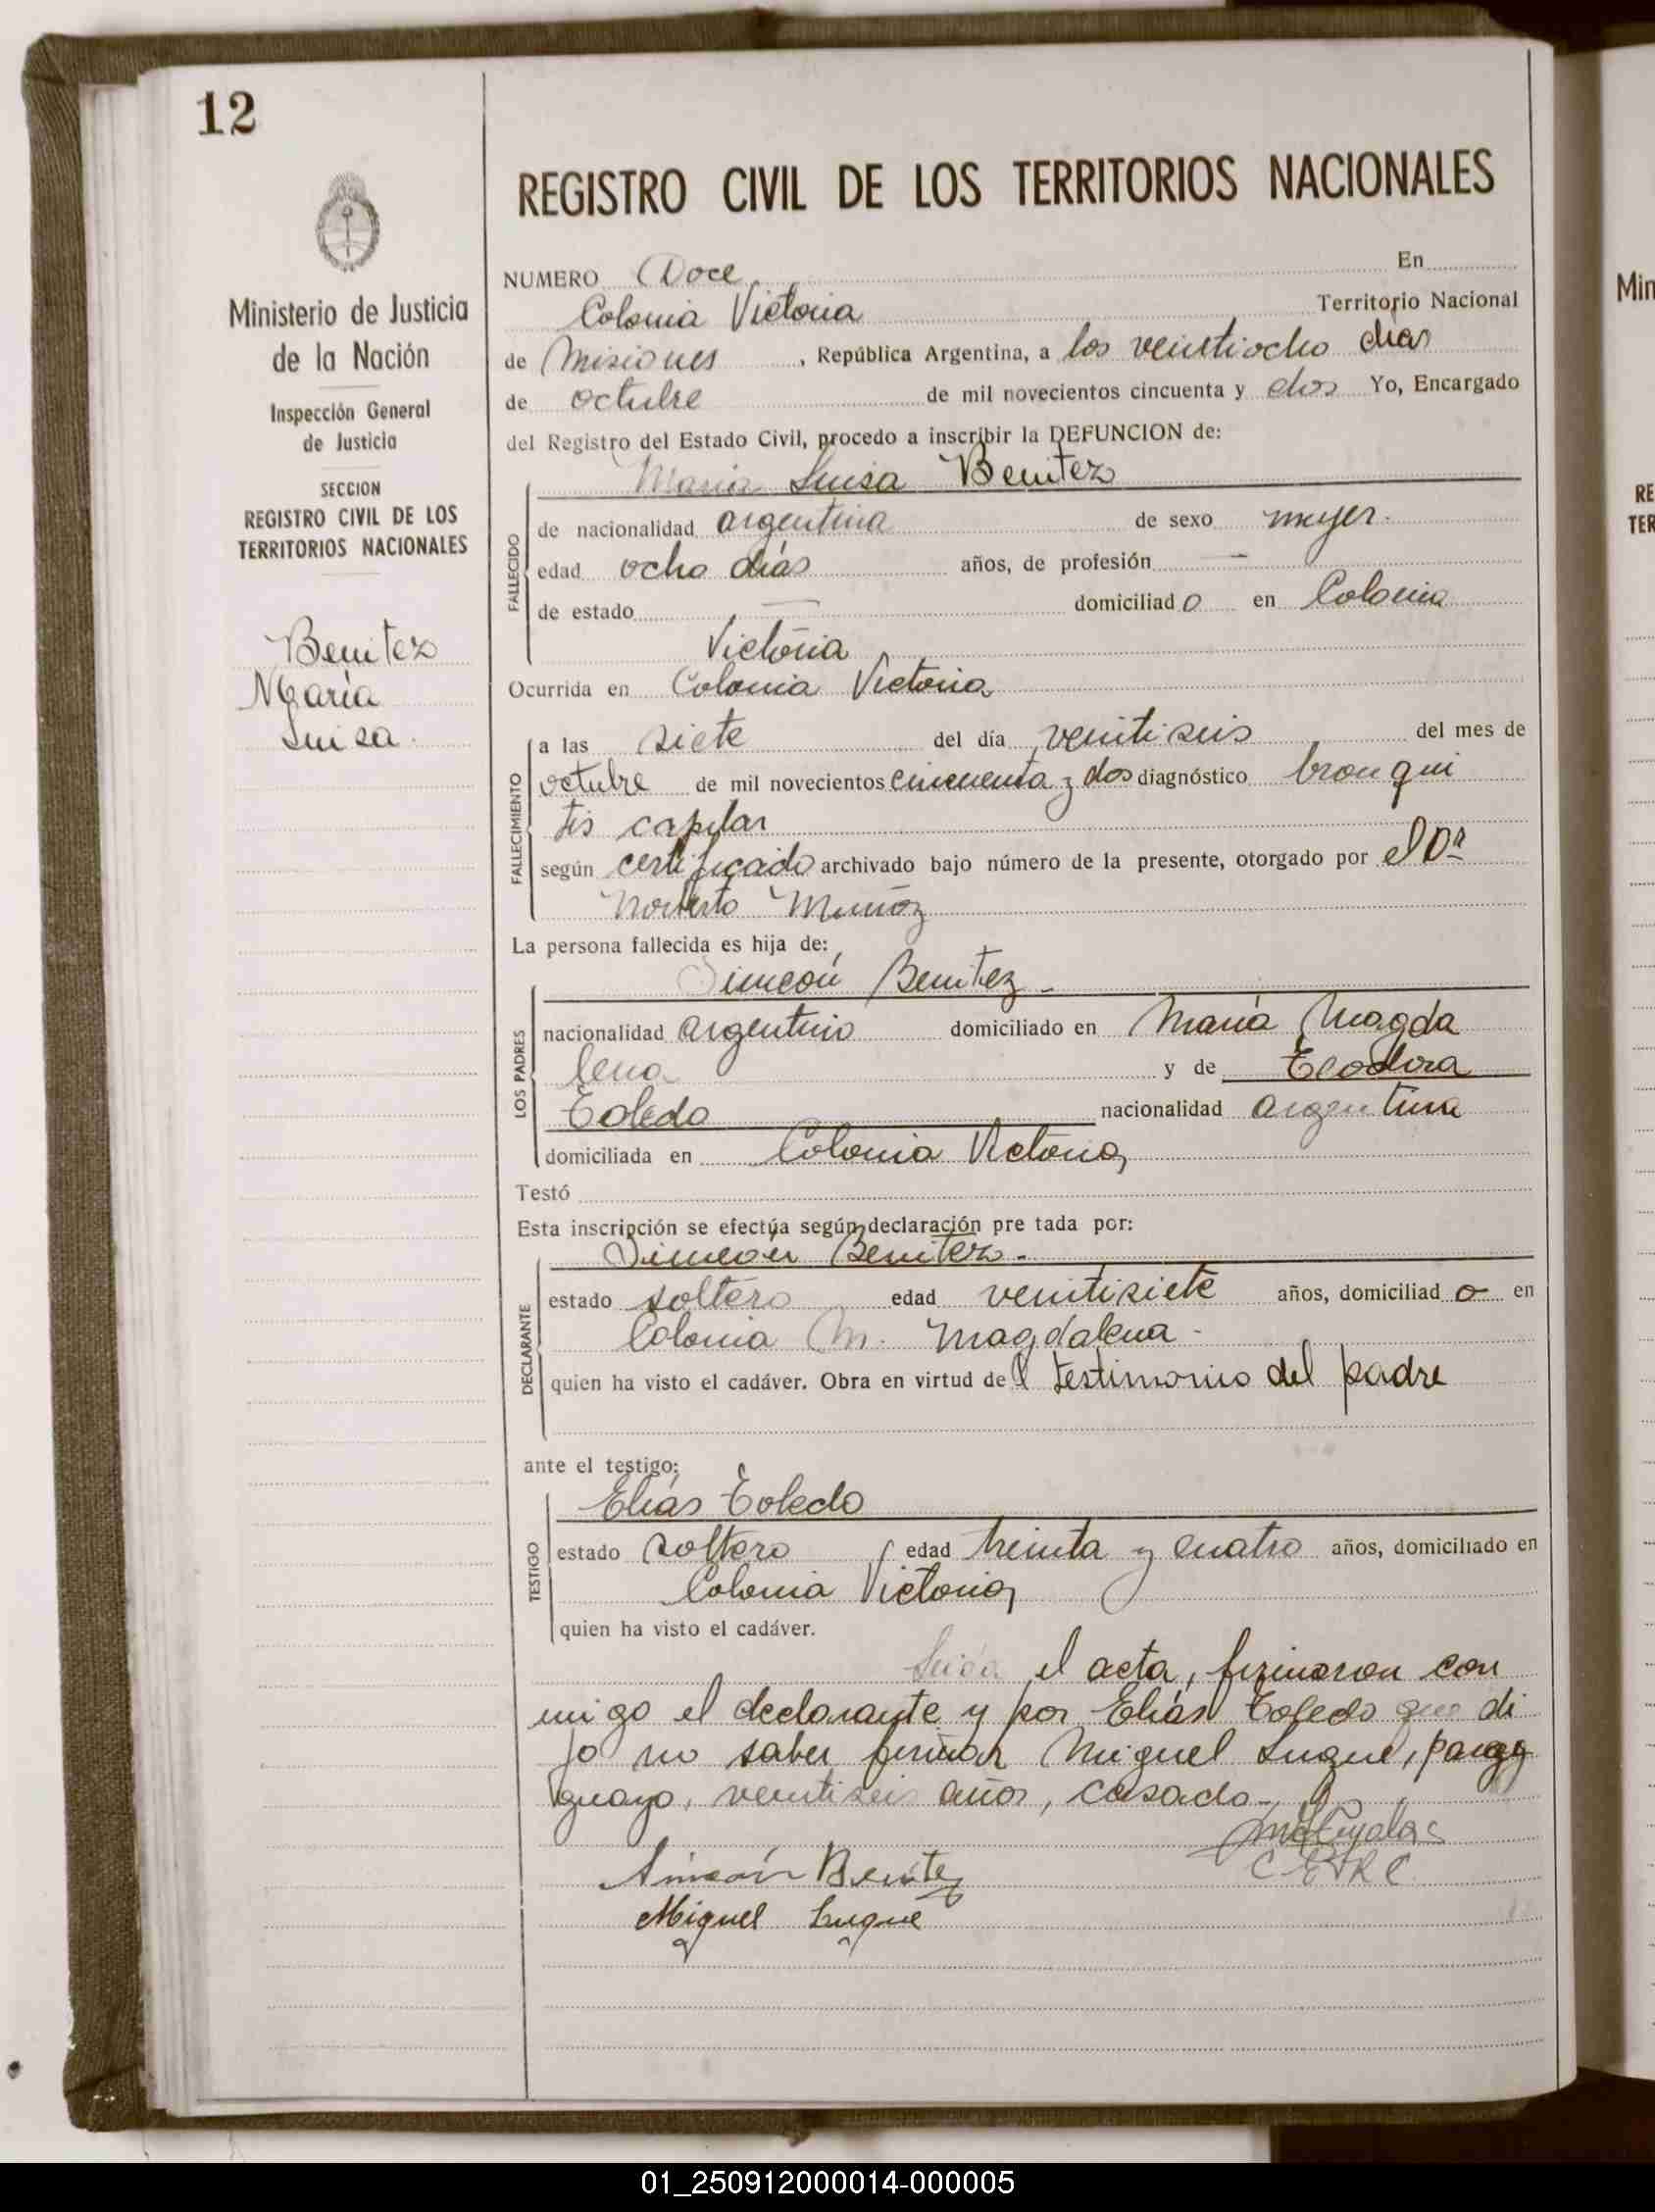 12
Ministerio de Justicia
de la Nación
Inspección General
de Justicia
SECCION
REGISTRO CIVIL DE LOS
TERRITORIOS NACIONALES
Benitez
María
Luisa.
REGISTRO CIVIL DE LOS TERRITORIOS NACIONALES
NUMERO Doce En
Colonia Victoria Territorio Nacional
de Misiones, República Argentina, a los veintiocho dias
de octubre de mil novecientos cincuenta y dos Yo, Encargado
del Registro del Estado Civil, procedo a inscribir la DEFUNCION de:
Maria Luisa Benitez
FALLECIDO
de nacionalidad argentina de sexo mujer.
edad ocho días años, de profesión —
de estado — domiciliado en Colonia
Victoria
Ocurrida en Colonia Victoria
FALLECIMIENTO
a las siete del día veintiseis del mes de
octubre de mil novecientos cincuenta y dos diagnóstico bronqui
tis capilar
según certificado archivado bajo número de la presente, otorgado por el Dr
Norberto Muñoz
La persona fallecida es hija de:
Simeón Benitez -
LOS PADRES
nacionalidad argentino domiciliado en María Magda
lena y de Teodora
Toledo nacionalidad argentina
domiciliada en Colonia Victoria
Testó
Esta inscripción se efectúa según declaración pre tada por:
Simeón Benitez -
DECLARANTE
estado soltero edad veintisiete años, domiciliado en
Colonia M. Magdalena -
quien ha visto el cadáver. Obra en virtud del testimonio del padre
ante el testigo:
Elías Toledo
TESTIGO
estado soltero edad treinta y cuatro años, domiciliado en
Colonia Victoria
quien ha visto el cadáver.
Leida el acta, firmaron con
migo el declarante y por Elías Toledo que di
jo no saber firmar Miguel Luque, parag
guayo, veintiseis años, casado -
C E R C
Simeón Benitez
Miguel Luque
Min
RE
TER
01_250912000014-000005